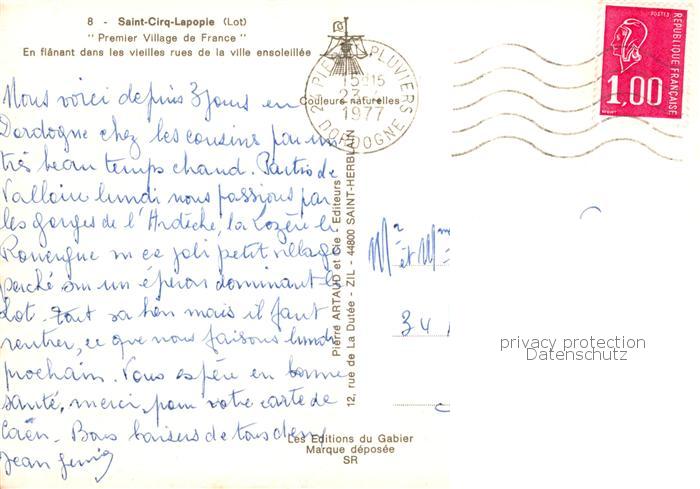 8 - Saint-Cirq-Lapopie (Lot)
" Premier Village de France "
En flânant dans les vieilles rues de la ville ensoleillée
Couleurs naturelles
24 PIEGUT PLUVIERS
15H15
1977
DORDOGNE
POSTES
REPUBLIQUE FRANÇAISE
1,00
Nous voici depuis 3 jours en
Dordogne chez les cousins par un
très beau temps chaud. Partis de
Valloire lundi nous passions par
les gorges de l'Ardèche, la Lozère le
Rouergue ce joli petit village
perché sur un éperon dominant le
Lot. Tout sa bon mais il faut
rentrer, ce que nous faisons lundi
prochain. Vous espère en bonne
santé, merci, pour votre carte de
Caën. Bons baisers de tous deux
Jean
Pierre ARTAUD et Cie - Editeurs
12, rue de La Dutée - ZIL - 44800 SAINT-HERBLAIN
Mr
et Mme
34
privacy protection
Datenschutz
Les Editions du Gabier
Marque déposée
SR